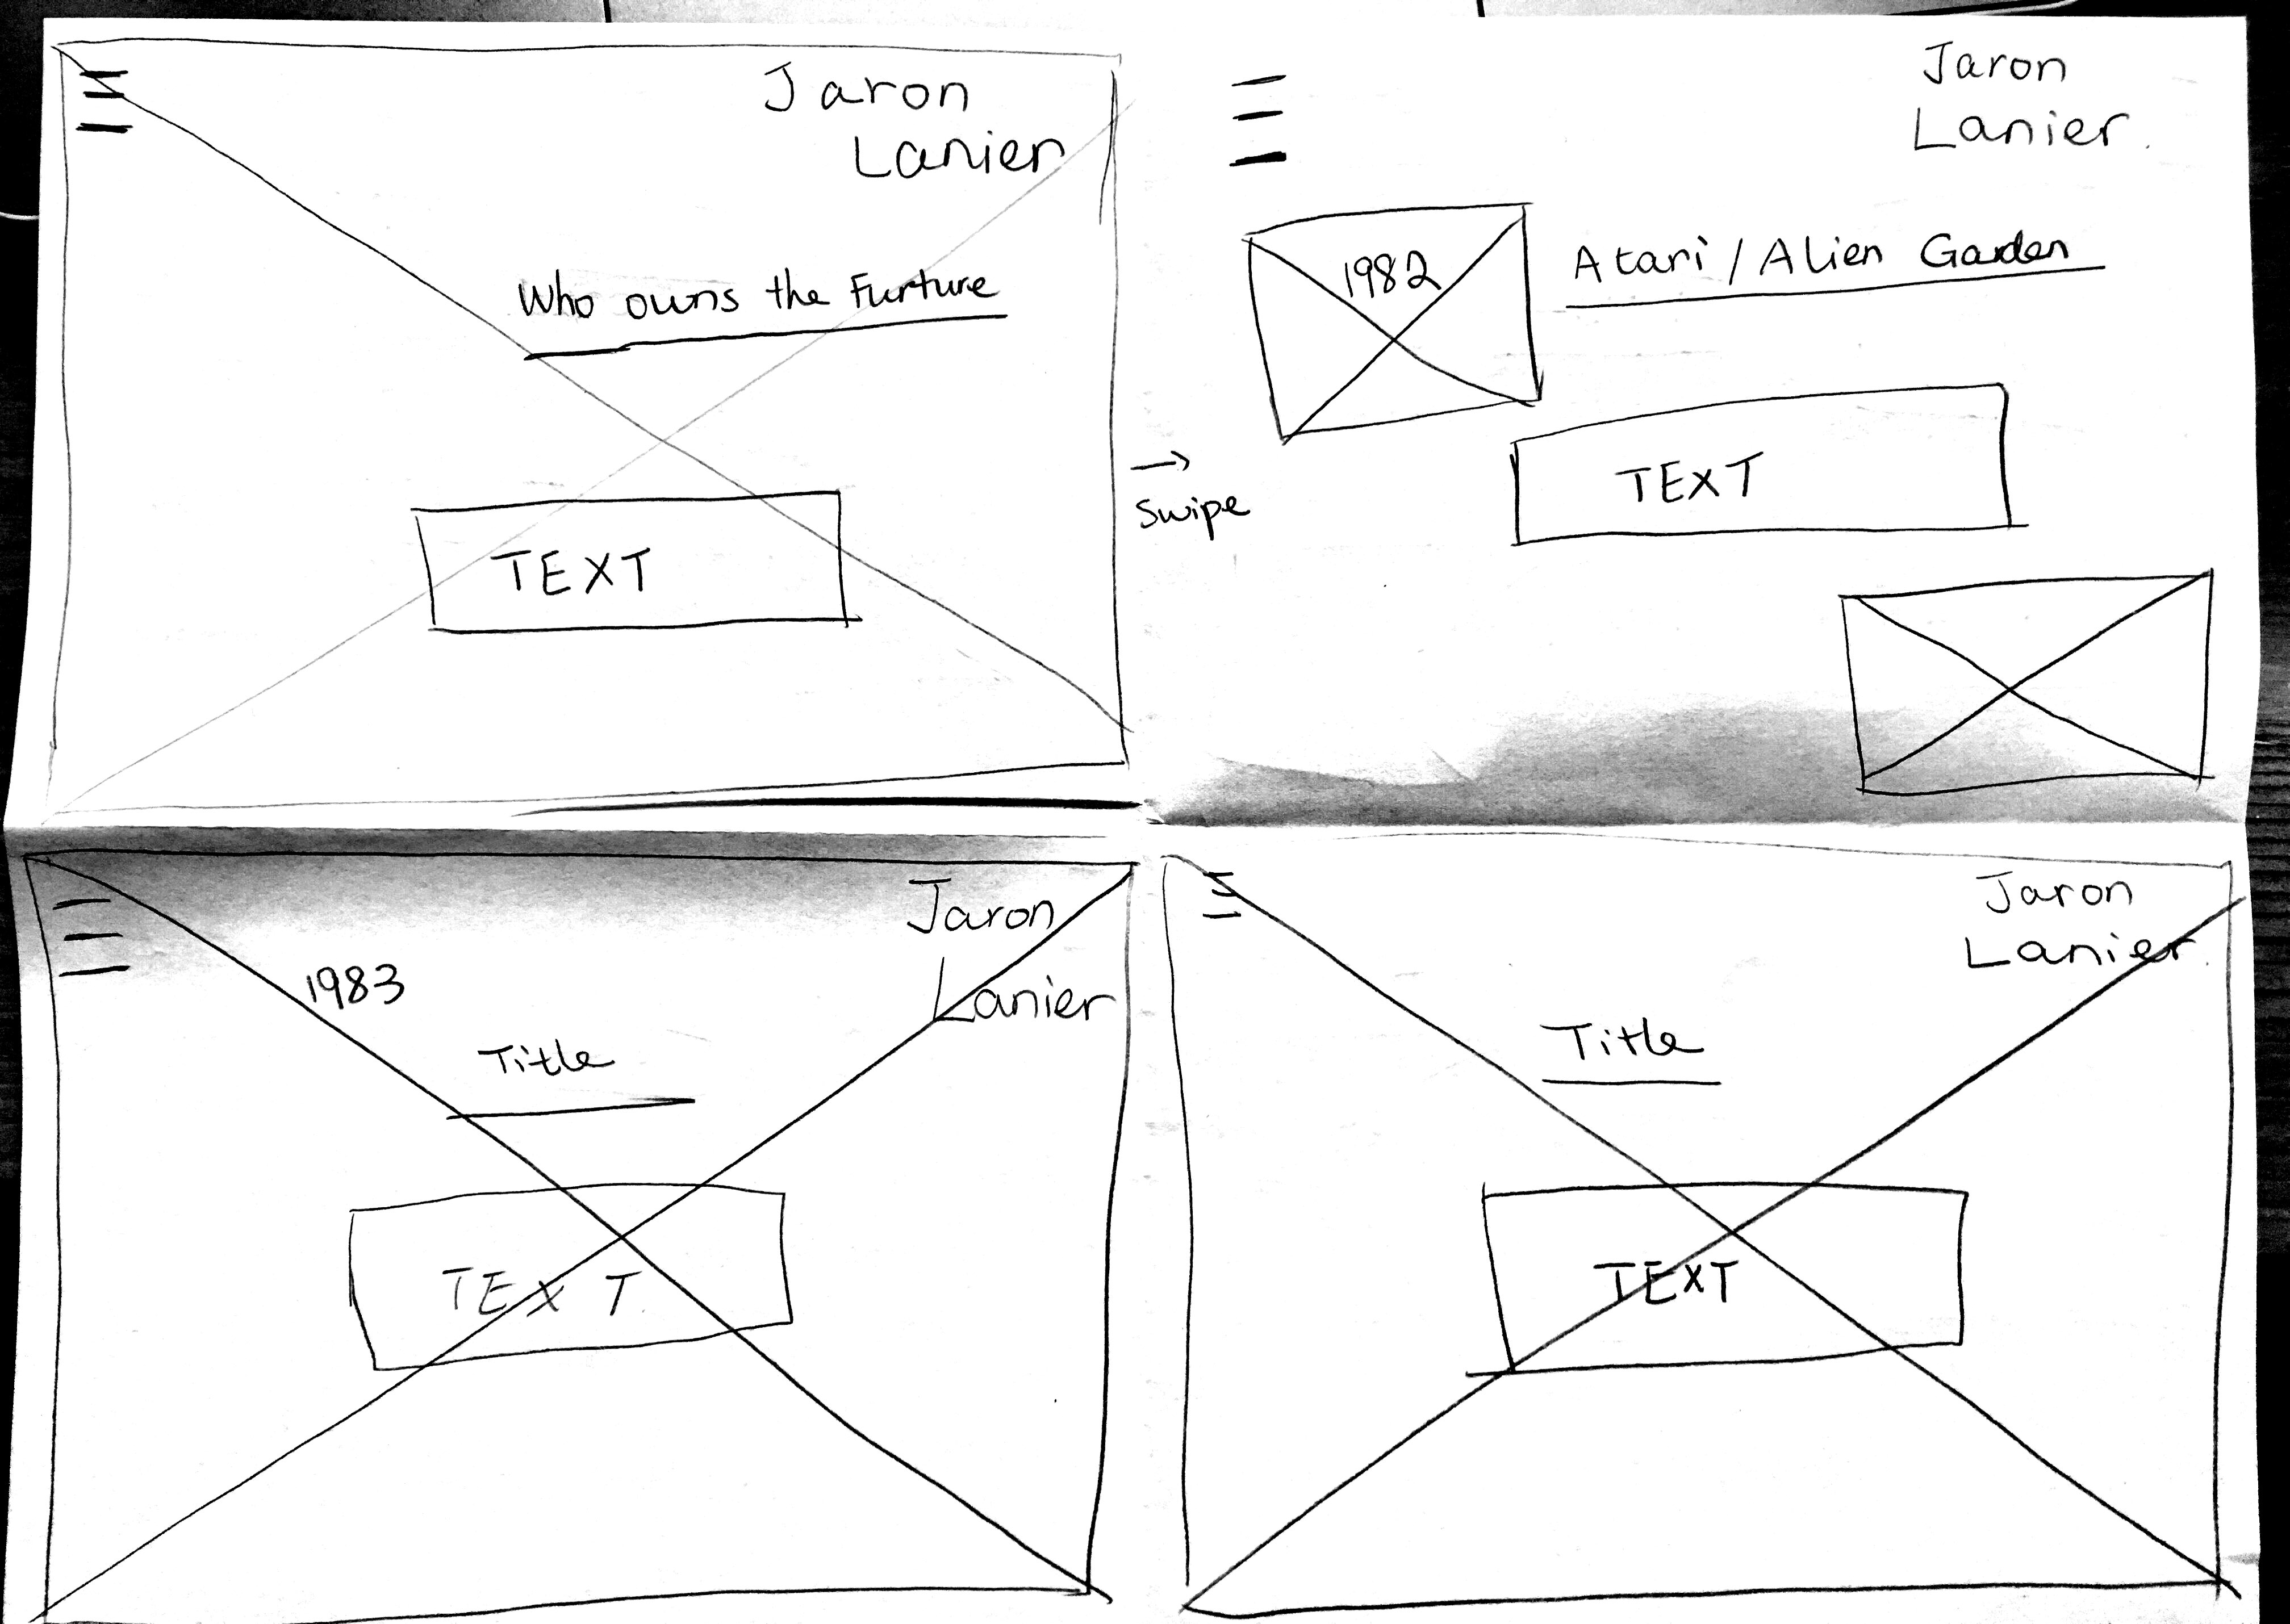 Jaron
Lanier
Who owns the Furture
TEXT
→
Swipe
Jaron
Lanier.
1982
Atari / Alien Garden
TEXT
Jaron
Lanier
1983
Title
TEXT
Jaron
Lanier.
Title
TEXT